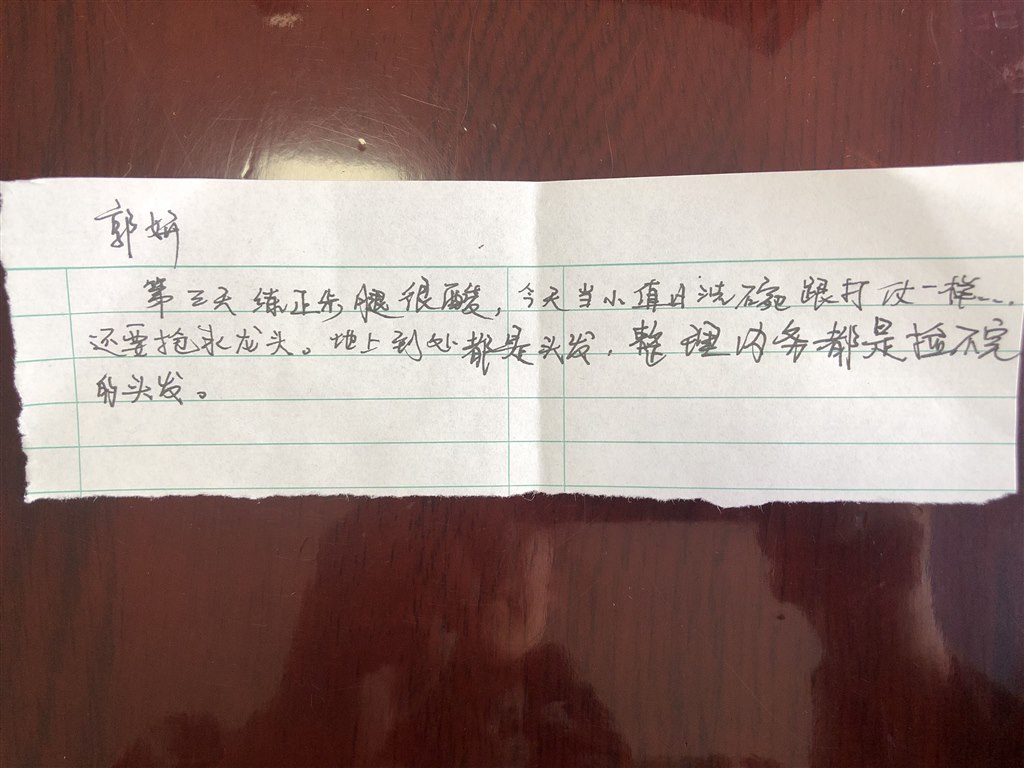 郭妍
第三天练正步腿很酸，今天当小值日洗碗跟打仗一样……
还要抢水龙头。地上到处都是头发，整理内务都是捡不完
的头发。